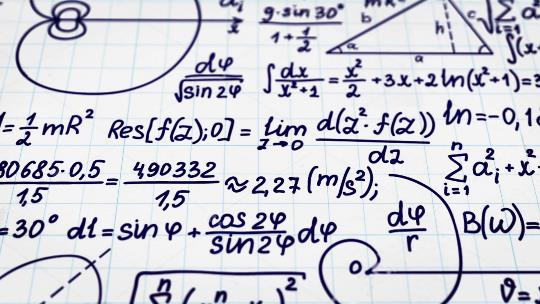 g·sin 30° / 1 + 1/2
b c h a a
√Σ a² i=1
dφ / √sin 2φ
∫ dx / x²+1 = x²/2 + 3x + 2 ln(x²+1) =
= 1/2 mR²
Res[f(z);0] = lim z→0 d(z²·f(z)) / dz
ln = -0,1
80685·0,5 / 1,5 = 490332 / 1,5 ≈ 2,27 (m/s²);
n Σ i=1 a²i + x²
= 30° dl = sin φ + cos 2φ / sin 2φ dφ
dφ / r
B(ω) =
0
n n 2
ϑ =